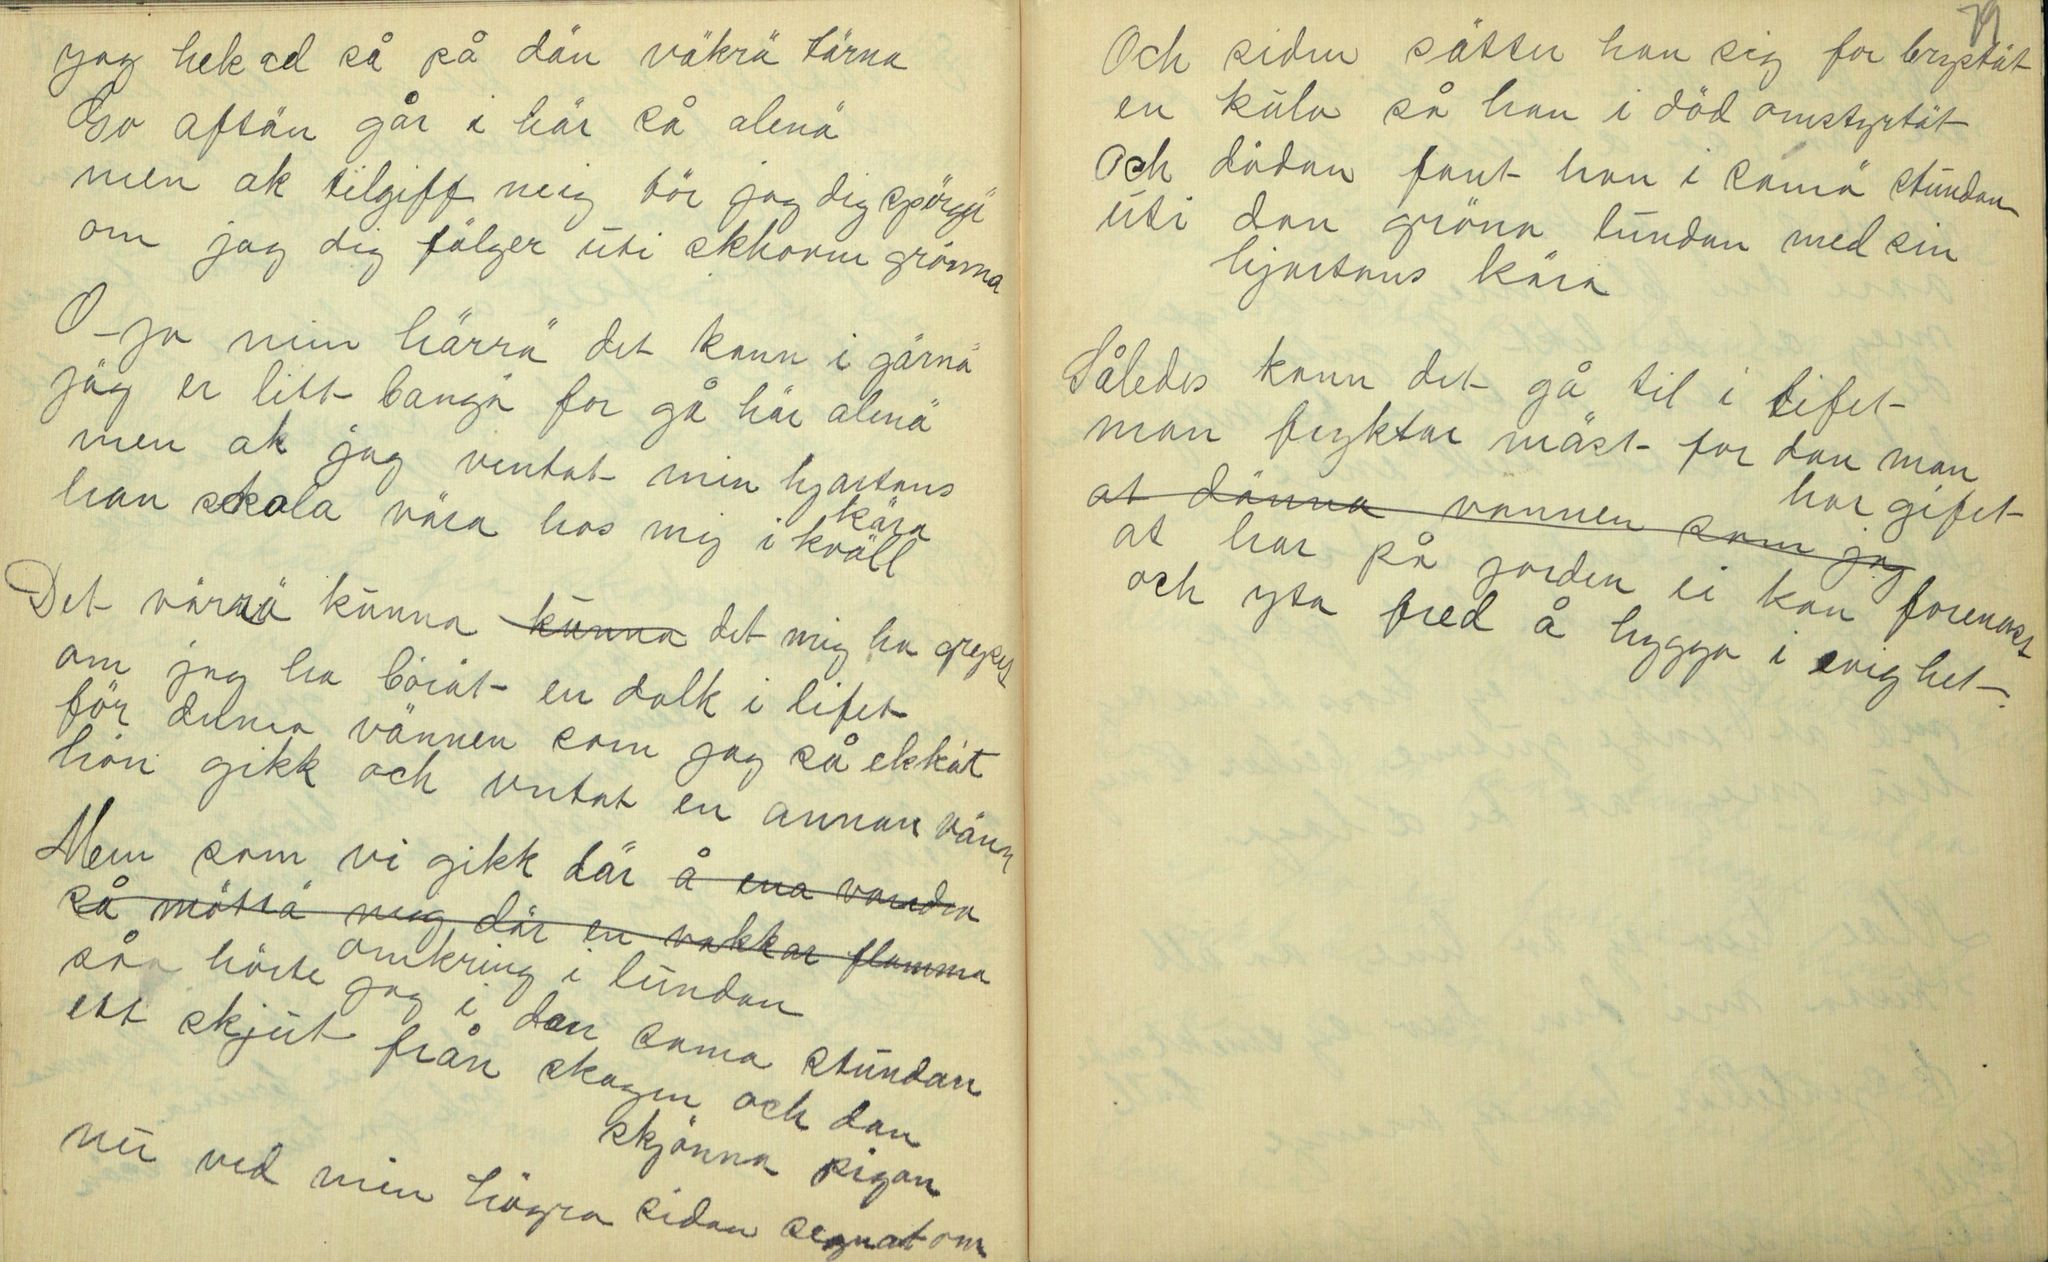 jag helsad så på dän väkrä tärna
Go aftän går i här så alenä
men ak tilgiff meig tör jag dig spörgä
om jag dig fölger uti skhoven grönna
O-ja min härrä det kann i gärnä
jäg er litt bangä for gå här alenä
men ak jag ventat min hjartans
kära
han skola våra hos mig i kväll
Det värrä kunna ~~kunna~~ det mig ha grepet
om jag ha böiät en dolk i lifet
för denna vännen som jag så elskät
hön gikk och ventat en annan vänn
Men som vi gikk där ~~å ena vandra~~
~~så möttä meg där en vakkar flamma~~
omkring i lundan
såa hörte jag i dan sama stundan
ett skjut från skogen och dan
skjönna pigan
nu ved min högra sidan segnat om
79
Och siden sätter han sig for brystät
en kula så han i död omstyrtät
Och dödan fant han i samä stundan
uti dan gröna lundan med sin
hjartans kära
Således kann det gå til i lifet
man fryktar mäst for dan man
har gifet
~~at dänna vannen som jag~~
at har på jorden ei kan forenast
och yta fred å hygga i evighet.